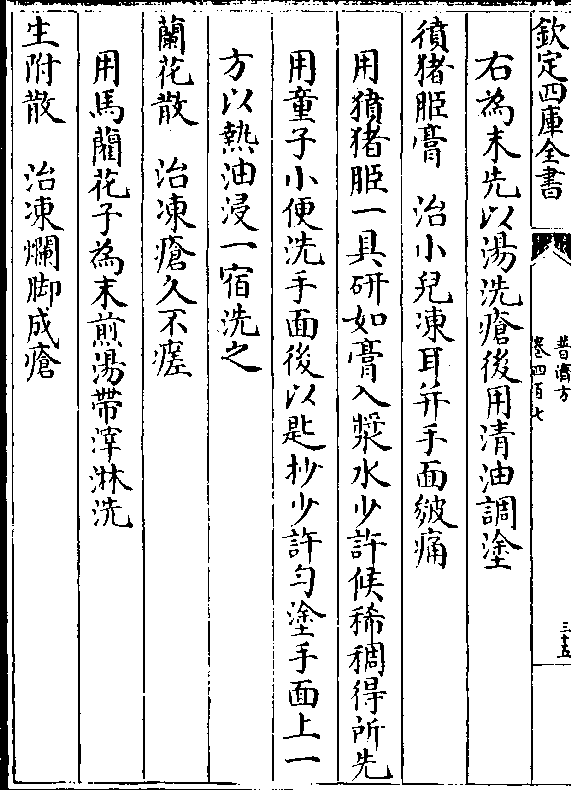 欽定四庫全書
普濟方
卷四百七
三十五
右為末先以湯洗瘡後用清油調塗
豶猪胵膏　治小兒凍耳并手面皴痛
用豶猪胵一具研如膏入漿水少許候稀稠得所先
用童子小便洗手面後以匙抄少許勻塗手面上一
方以熱油浸一宿洗之
蘭花散　治凍瘡久不瘥
用馬藺花子為末煎湯帶滓淋洗
生附散　治凍爛脚成瘡